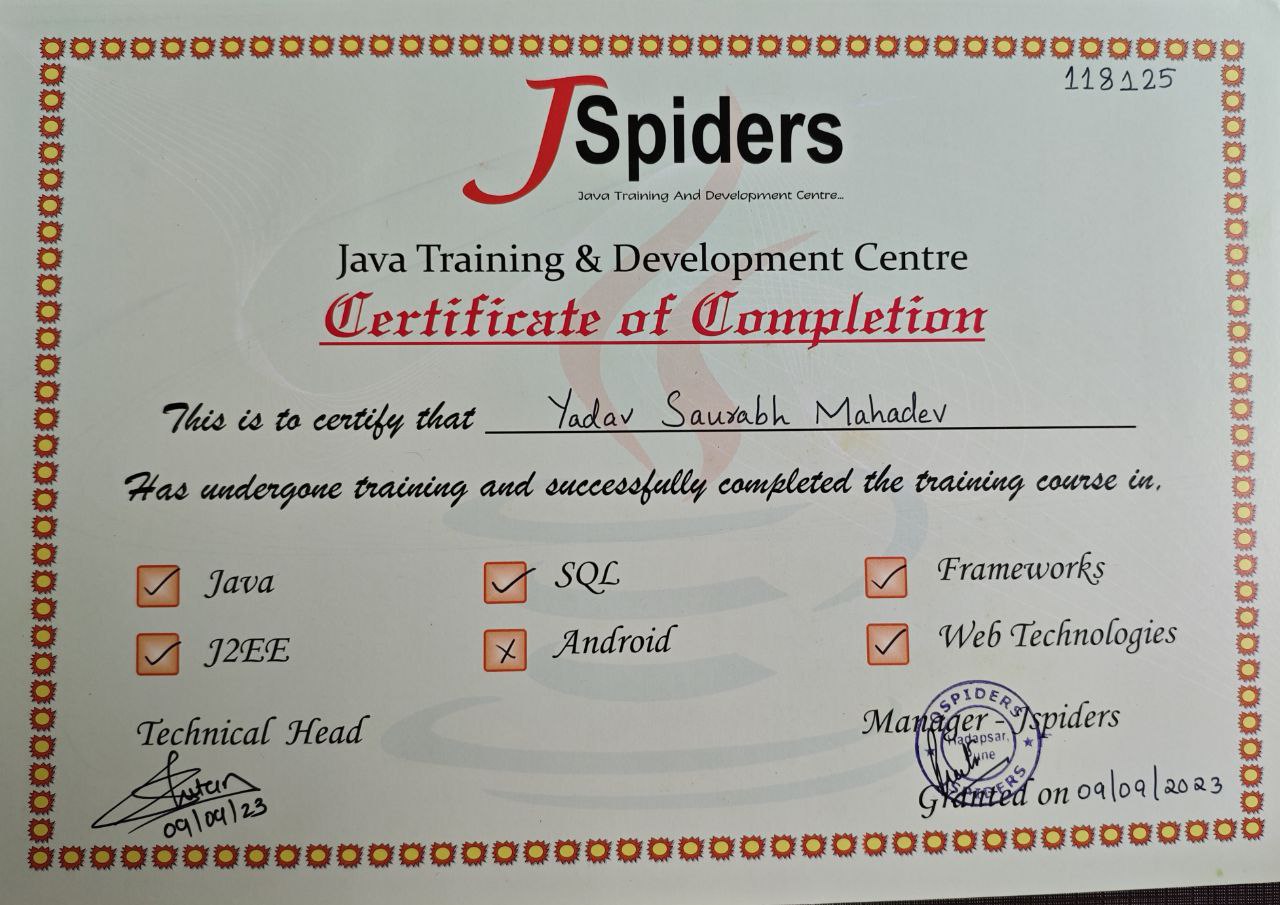 118125
JSpiders
Java Training And Development Centre...
Java Training & Development Centre
Certificate of Completion
This is to certify that Yadav Saurabh Mahadev
Has undergone training and successfully completed the training course in.
✓ Java ✓ SQL ✓ Frameworks
✓ J2EE X Android ✓ Web Technologies
Technical Head
09/09/23
Manager - Jspiders
JSPIDERS
Hadapsar,
Pune
SPIDERS
Granted on 09/09/2023